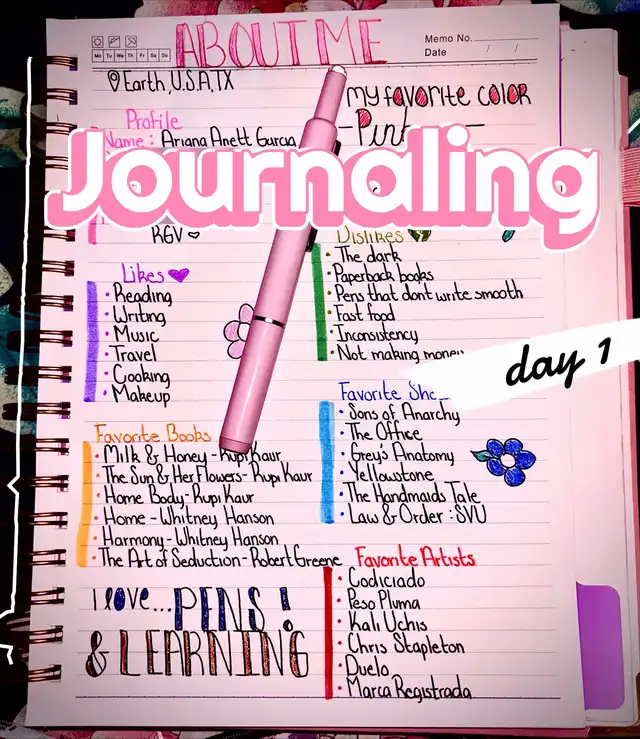 ABOUT ME
Memo No.
Mo Tu We Th Fr Sa Su
Date / /
Earth, U.S.A, TX
my favorite color
- Pink -
Profile
Name : Ariana Anett Garcia
Journaling
RGV
Likes
• Reading
• Writing
• Music
• Travel
• Cooking
• Makeup
Dislikes
• The dark
• Paperback books
• Pens that dont write smooth
• Fast food
• Inconsistency
• Not making money
day 1
Favorite Books
• Milk & Honey - Rupi Kaur
• The Sun & Her Flowers - Rupi Kaur
• Home Body - Rupi Kaur
• Home - Whitney Hanson
• Harmony - Whitney Hanson
• The Art of Seduction - Robert Greene
Favorite Sho
• Sons of Anarchy
• The Office
• Grey's Anatomy
• Yellowstone
• The Handmaids Tale
• Law & Order : SVU
Favorite Artists
• Codiciado
• Peso Pluma
• Kali Uchis
• Chris Stapleton
• Duelo
• Marca Registrada
I love... PENS !
& LEARNING